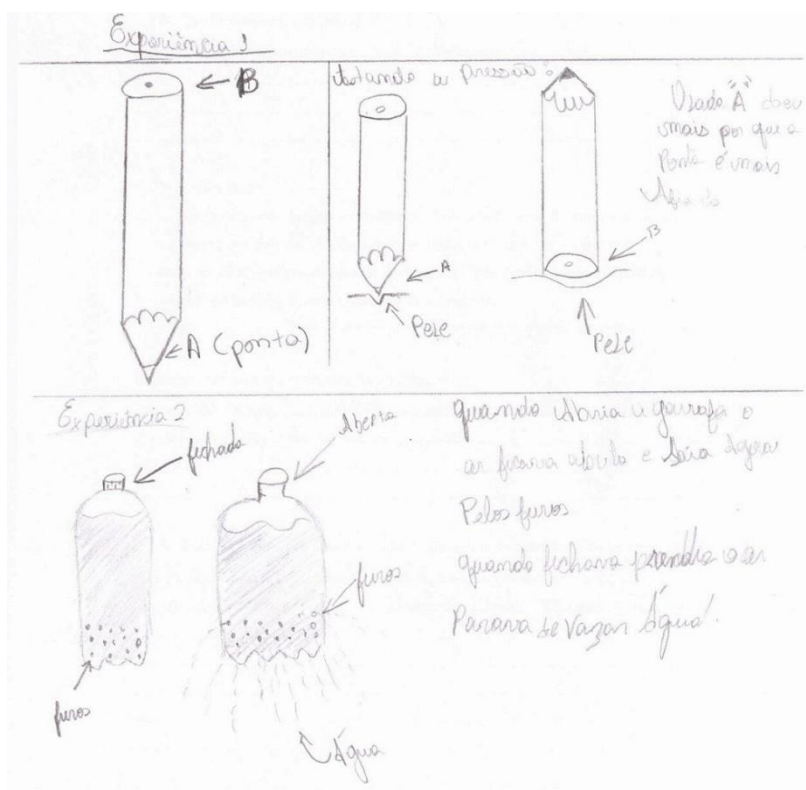 Experiência 1
B
A (ponta)
testando a pressão:
A
Pele
Usado "A" doeu
mais por que a
Ponta é mais
Afiada
B
Pele
Experiência 2
fechada
furos
Aberta
furos
Água
quando abria a garrafa o
ar ficava e saia água
Pelos furos
quando fechava prendia o ar
Parava de vazar Água.